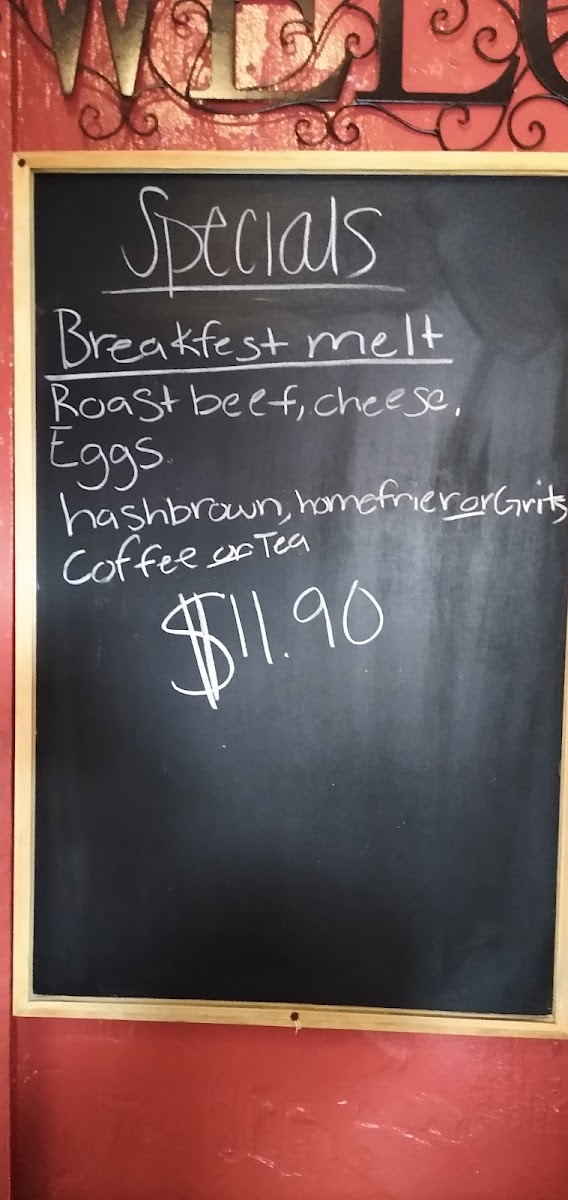 WELC
Specials
Breakfest melt
Roast beef, cheese,
Eggs
hashbrown, homefrier or Grits
Coffee or Tea
$11.90